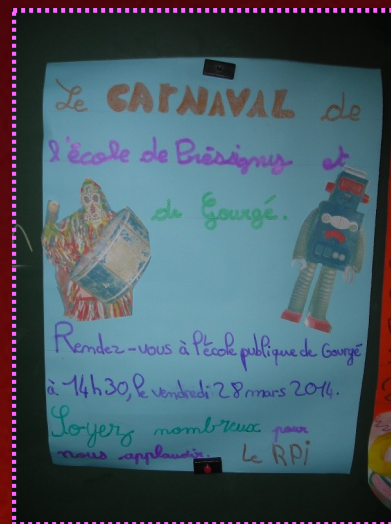 Le CARNAVAL de
l'école de Pressigny et
de Gourgé.
Rendez-vous à l'école publique de Gourgé
à 14h30, le vendredi 28 mars 2014.
Soyez nombreux pour
nous applaudir. Le RPi